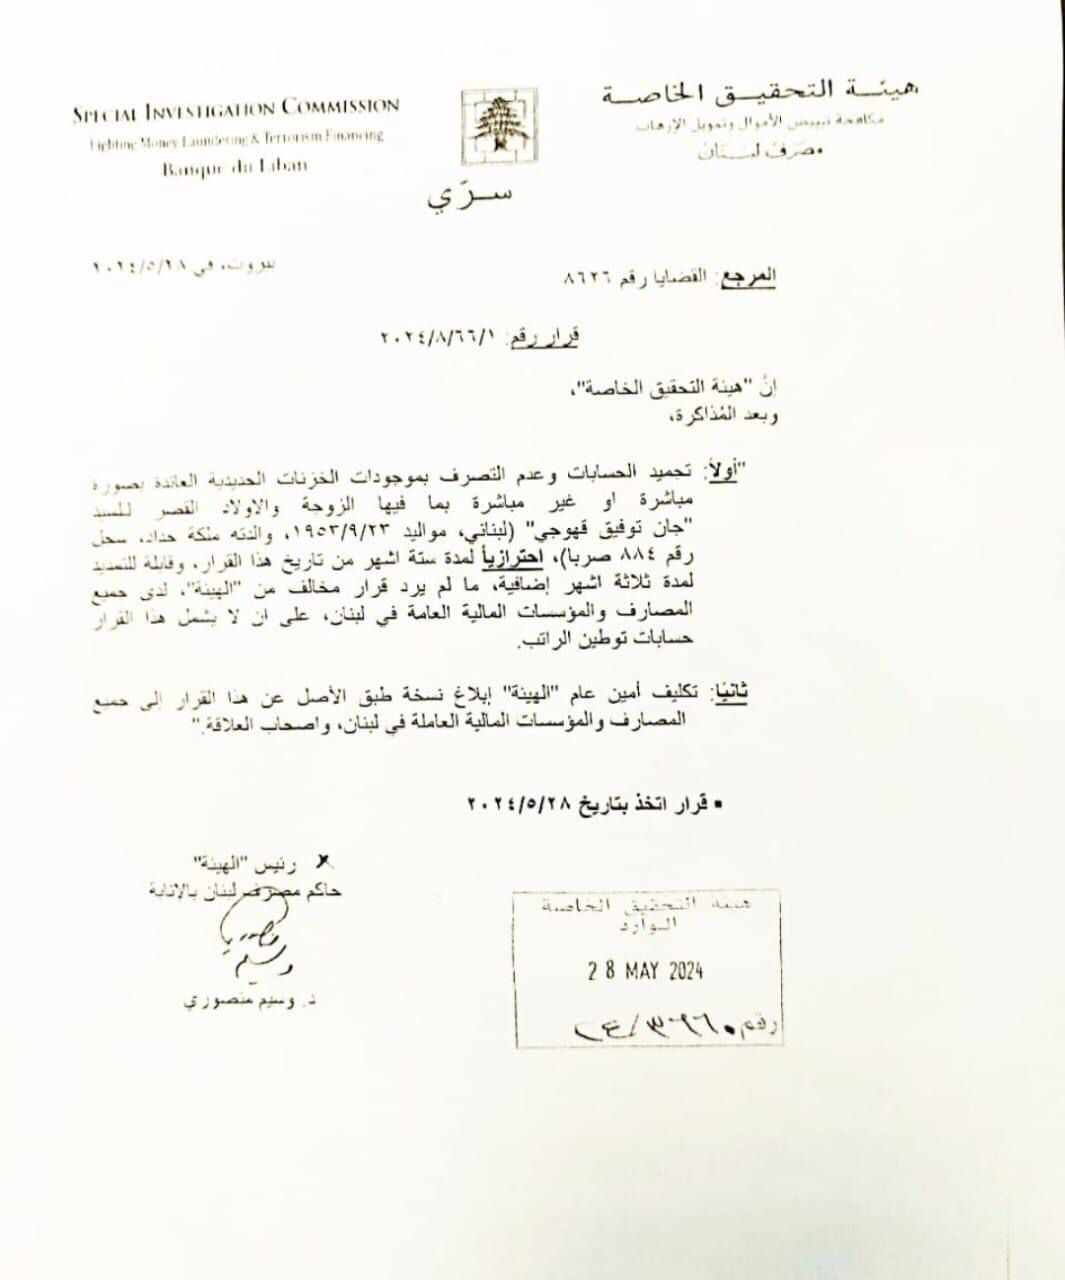 SPECIAL INVESTIGATION COMMISSION
Fighting Money Laundering & Terrorism Financing
Banque du Liban
هيئة التحقيق الخاصة
مكافحة تبييض الأموال وتمويل الإرهاب
مصرف لبنان
سرّي
بيروت، في ٢٠٢٤/٥/٢٨
المرجع: القضايا رقم ٨٦٢٦
قرار رقم: ٢٠٢٤/٨/٦٦/١
إنّ "هيئة التحقيق الخاصة"،
وبعد المُذاكرة،
"أولاً: تجميد الحسابات وعدم التصرف بموجودات الخزنات الحديدية العائدة بصورة
مباشرة او غير مباشرة بما فيها الزوجة والاولاد القصر للسيد
"جان توفيق قهوجي" (لبناني، مواليد ١٩٥٣/٩/٢٣، والدته ملكة حداد، سجل
رقم ٨٨٤ صربا)، احترازياً لمدة ستة اشهر من تاريخ هذا القرار، وقابلة للتمديد
لمدة ثلاثة اشهر إضافية، ما لم يرد قرار مخالف من "الهيئة"، لدى جميع
المصارف والمؤسسات المالية العامة في لبنان، على ان لا يشمل هذا القرار
حسابات توطين الراتب.
ثانيًا: تكليف أمين عام "الهيئة" إبلاغ نسخة طبق الأصل عن هذا القرار إلى جميع
المصارف والمؤسسات المالية العاملة في لبنان، واصحاب العلاقة."
▪ قرار اتخذ بتاريخ ٢٠٢٤/٥/٢٨
رئيس "الهيئة"
حاكم مصرف لبنان بالإنابة
د. وسيم منصوري
هيئة التحقيق الخاصة
الوارد
28 MAY 2024
رقم